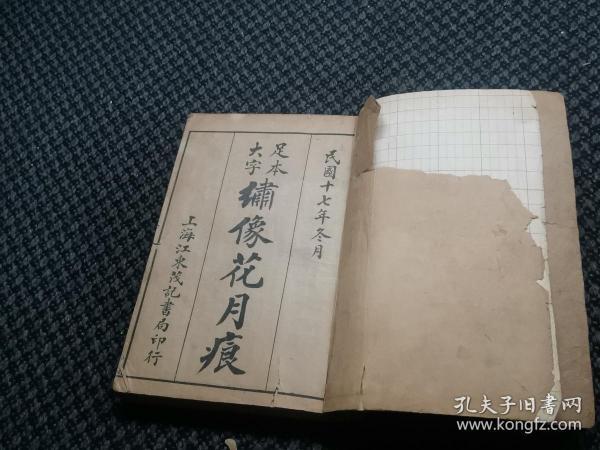 民國十七年冬月
足本
大字
繡像花月痕
上海江東茂記書局印行
孔夫子旧書网
www.kongfz.com